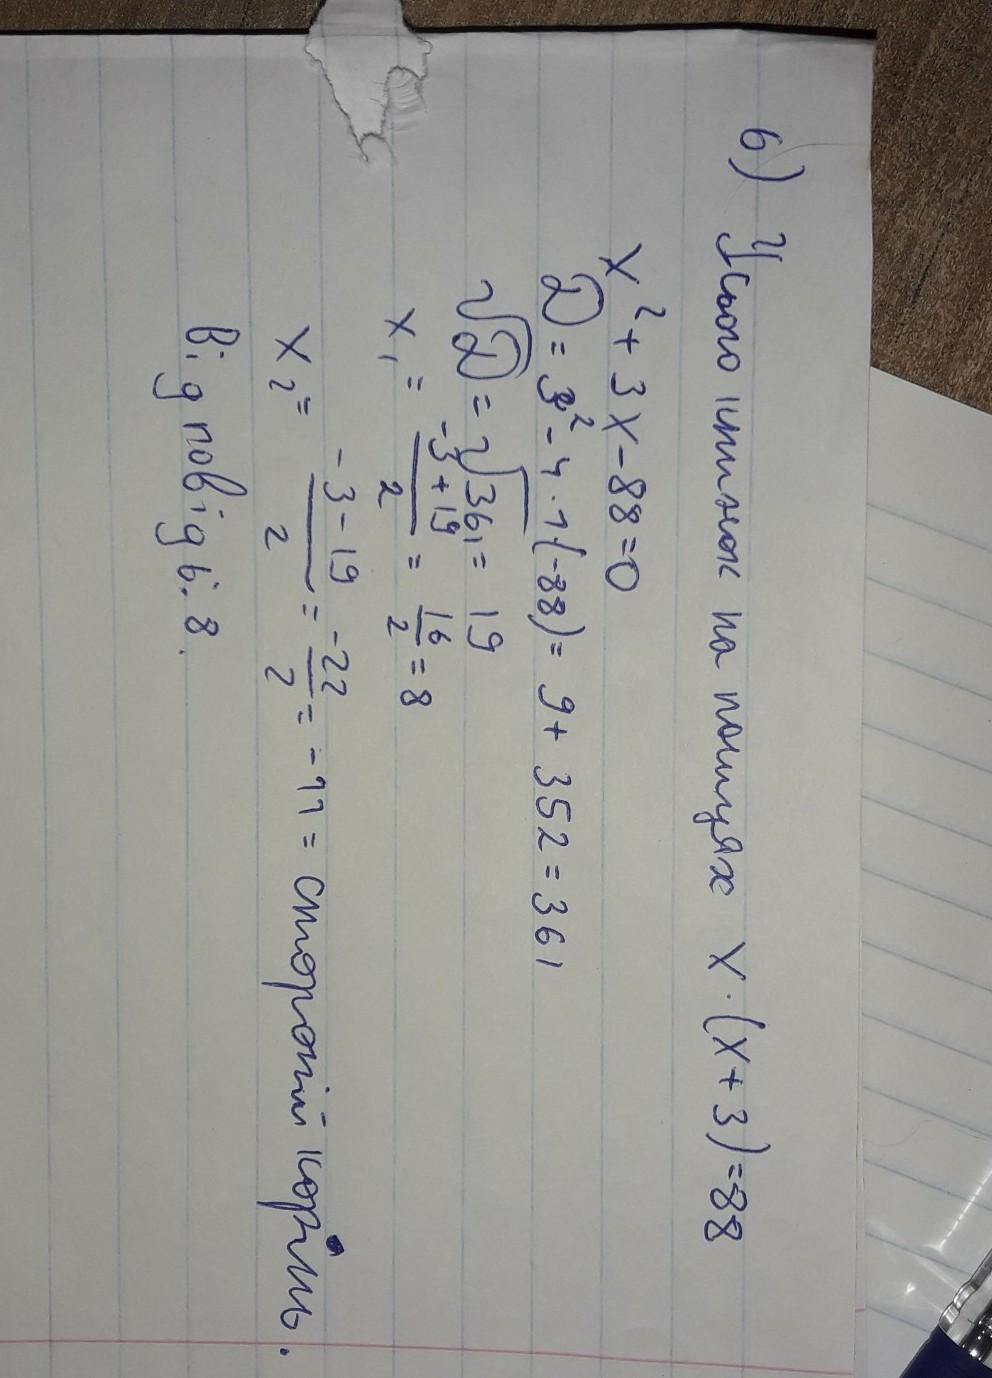 6) Усього книжок на полицях x·(x+3)=88
x²+3x-88=0
D=3²-4·1·(-88)=9+352=361
√D=√361=19
x₁=(-3+19)/2=16/2=8
x₂=(-3-19)/2=-22/2=-11= сторонній корінь.
Відповідь: 8.